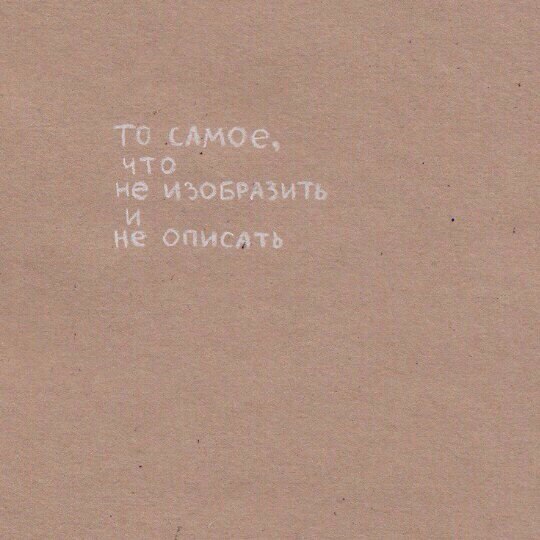 то самое,
что
не изобразить
и
не описать